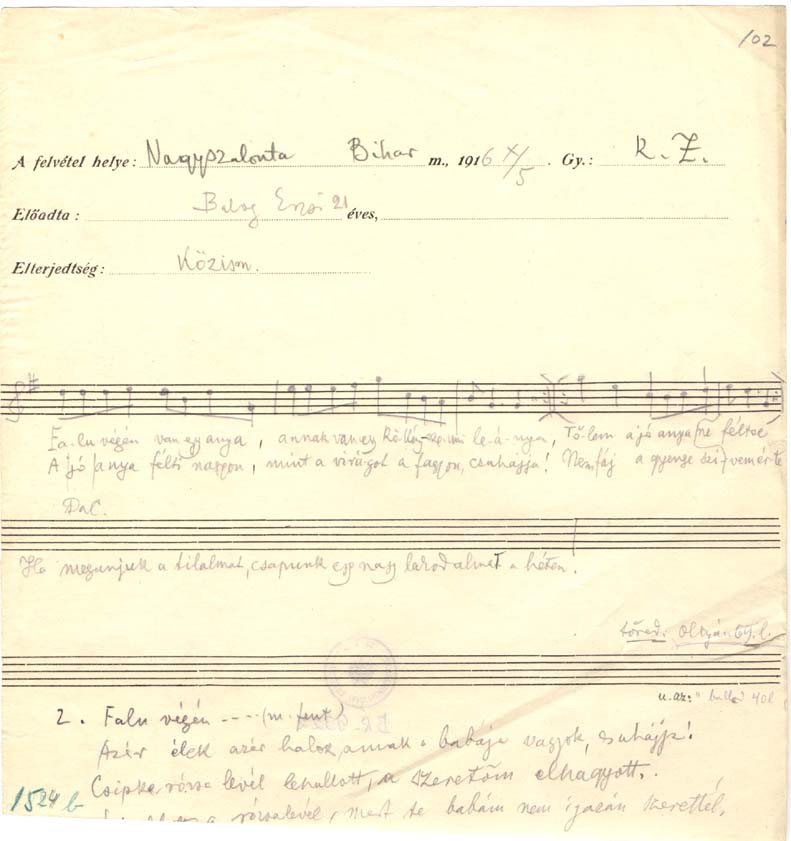 102
A felvétel helye: Nagyszalonta Bihar m., 1916 X/5. Gy.: K. Z.
Előadta: Balog Erzsi 21 éves,
Elterjedtség: Közism.
Falu végén van egy anya, annak van egy leánya, Tőlem a jó anya ne féltse
A jó anya félti nagyon, mint a virágot a fagyon, csuhajja! Nem fáj a gyenge szivem érte
DaC.
Ha megunjuk a tilalmat, csapunk egy nagy lakodalmat a héten.
töred.
u. az:
2. Falu végén ---- (m. fent)
Azér élek azér halok, annak a babája vagyok, csuhájja!
Csipke rózsa levél lehullott, a szeretőm elhagyott.
a rózsalevél, mert te babám nem igazán szerettél.
1524 b